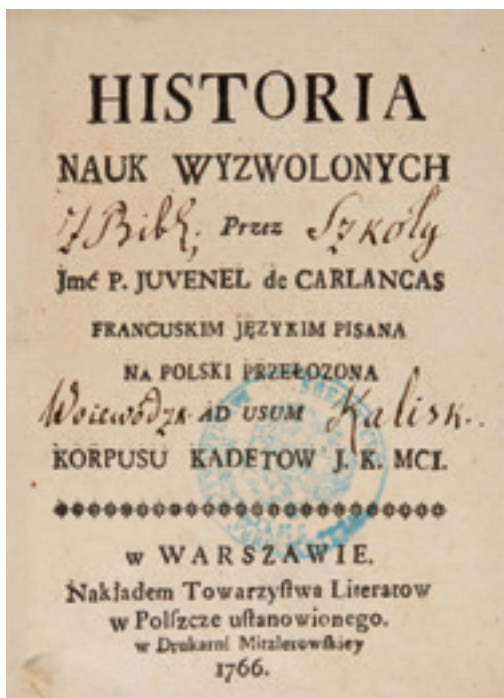 HISTORIA
NAUK WYZWOLONYCH
Z Bibl; Przez Szkoły
Jmć P. JUVENEL de CARLANCAS
FRANCUSKIM JĘZYKIM PISANA
NA POLSKI PRZEŁOZONA
Woiewódzk AD USUM Kalisk..
KORPUSU KADETOW J. K. MCI.
w WARSZAWIE.
Nakładem Towarzyſtwa Literatow
w Polſzcze uſtanowionego.
w Drukarni Mitzlerowſkiey
1766.